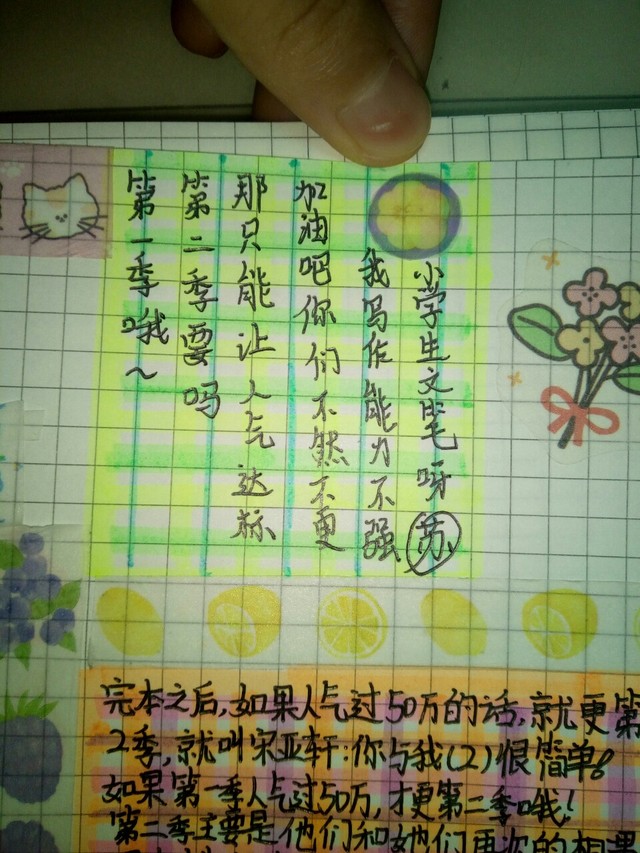 第一季哦~
第二季要吗
那只能让人气达标
加油吧你们不然不更
我写作能力不强
小学生文笔呀 苏
完本之后,如果人气过50万的话,就更第
2季,就叫宋亚轩:你与我(2)恨简单。
如果第一季人气过50万,才更第二季哦!
第二季主要是他们和她们再次的相遇